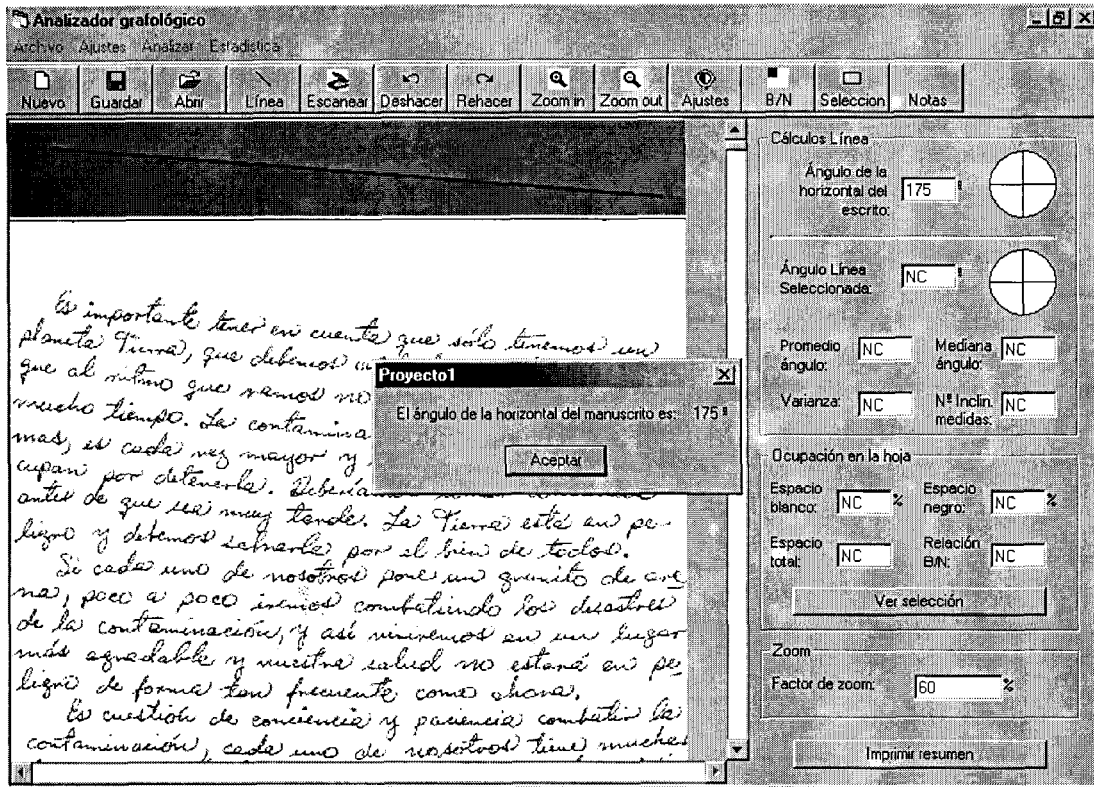 Analizador grafológico
Archivo Ajustes Analizar Estadística
Nuevo Guardar Abrir Línea Escanear Deshacer Rehacer Zoom in Zoom out Ajustes B/N Seleccion Notas
Es importante tener en cuenta que sólo tenemos un
planeta Tierra, que debemos
que al ritmo que vamos no
mucho tiempo. La contamina
mas, es cada vez mayor y
cupan por detenerla. Debería
antes de que sea muy tarde. La Tierra está en pe-
ligro y debemos salvarla por el bien de todos.
Si cada uno de nosotros pone un granito de are
na, poco a poco iremos combatiendo los desastres
de la contaminación, y así viviremos en un lugar
más agradable y nuestra salud no estará en pe
ligro de forma tan frecuente como ahora.
Es cuestión de conciencia y paciencia combatir la
contaminación, cada uno de nosotros tiene muchas
Proyecto1
El ángulo de la horizontal del manuscrito es: 175 º
Aceptar
Cálculos Línea
Ángulo de la
horizontal del
escrito: 175 º
Ángulo Línea
Seleccionada: NC º
Promedio
ángulo: NC
Mediana
ángulo: NC
Varianza: NC
Nº Inclin.
medidas: NC
Ocupación en la hoja
Espacio
blanco: NC %
Espacio
negro: NC %
Espacio
total: NC
Relación
B/N: NC
Ver selección
Zoom
Factor de zoom: 60 %
Imprimir resumen